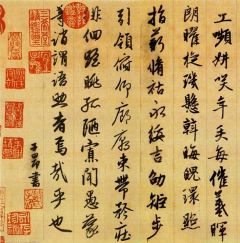 工顰妍笑年矢每催羲暉
朗曜旋璣懸斡晦魄環照
指薪脩祜永綏吉劭矩步
引領俯仰廊廟束帶矜莊
徘徊瞻眺孤陋寡聞愚蒙
等誚謂語助者焉哉乎也
子昂書